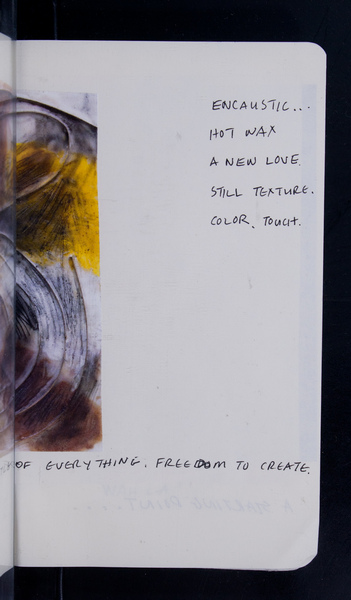 ENCAUSTIC...
HOT WAX
A NEW LOVE.
STILL TEXTURE.
COLOR. TOUCH.
OF EVERYTHING. FREEDOM TO CREATE.
"A STARTING POINT....